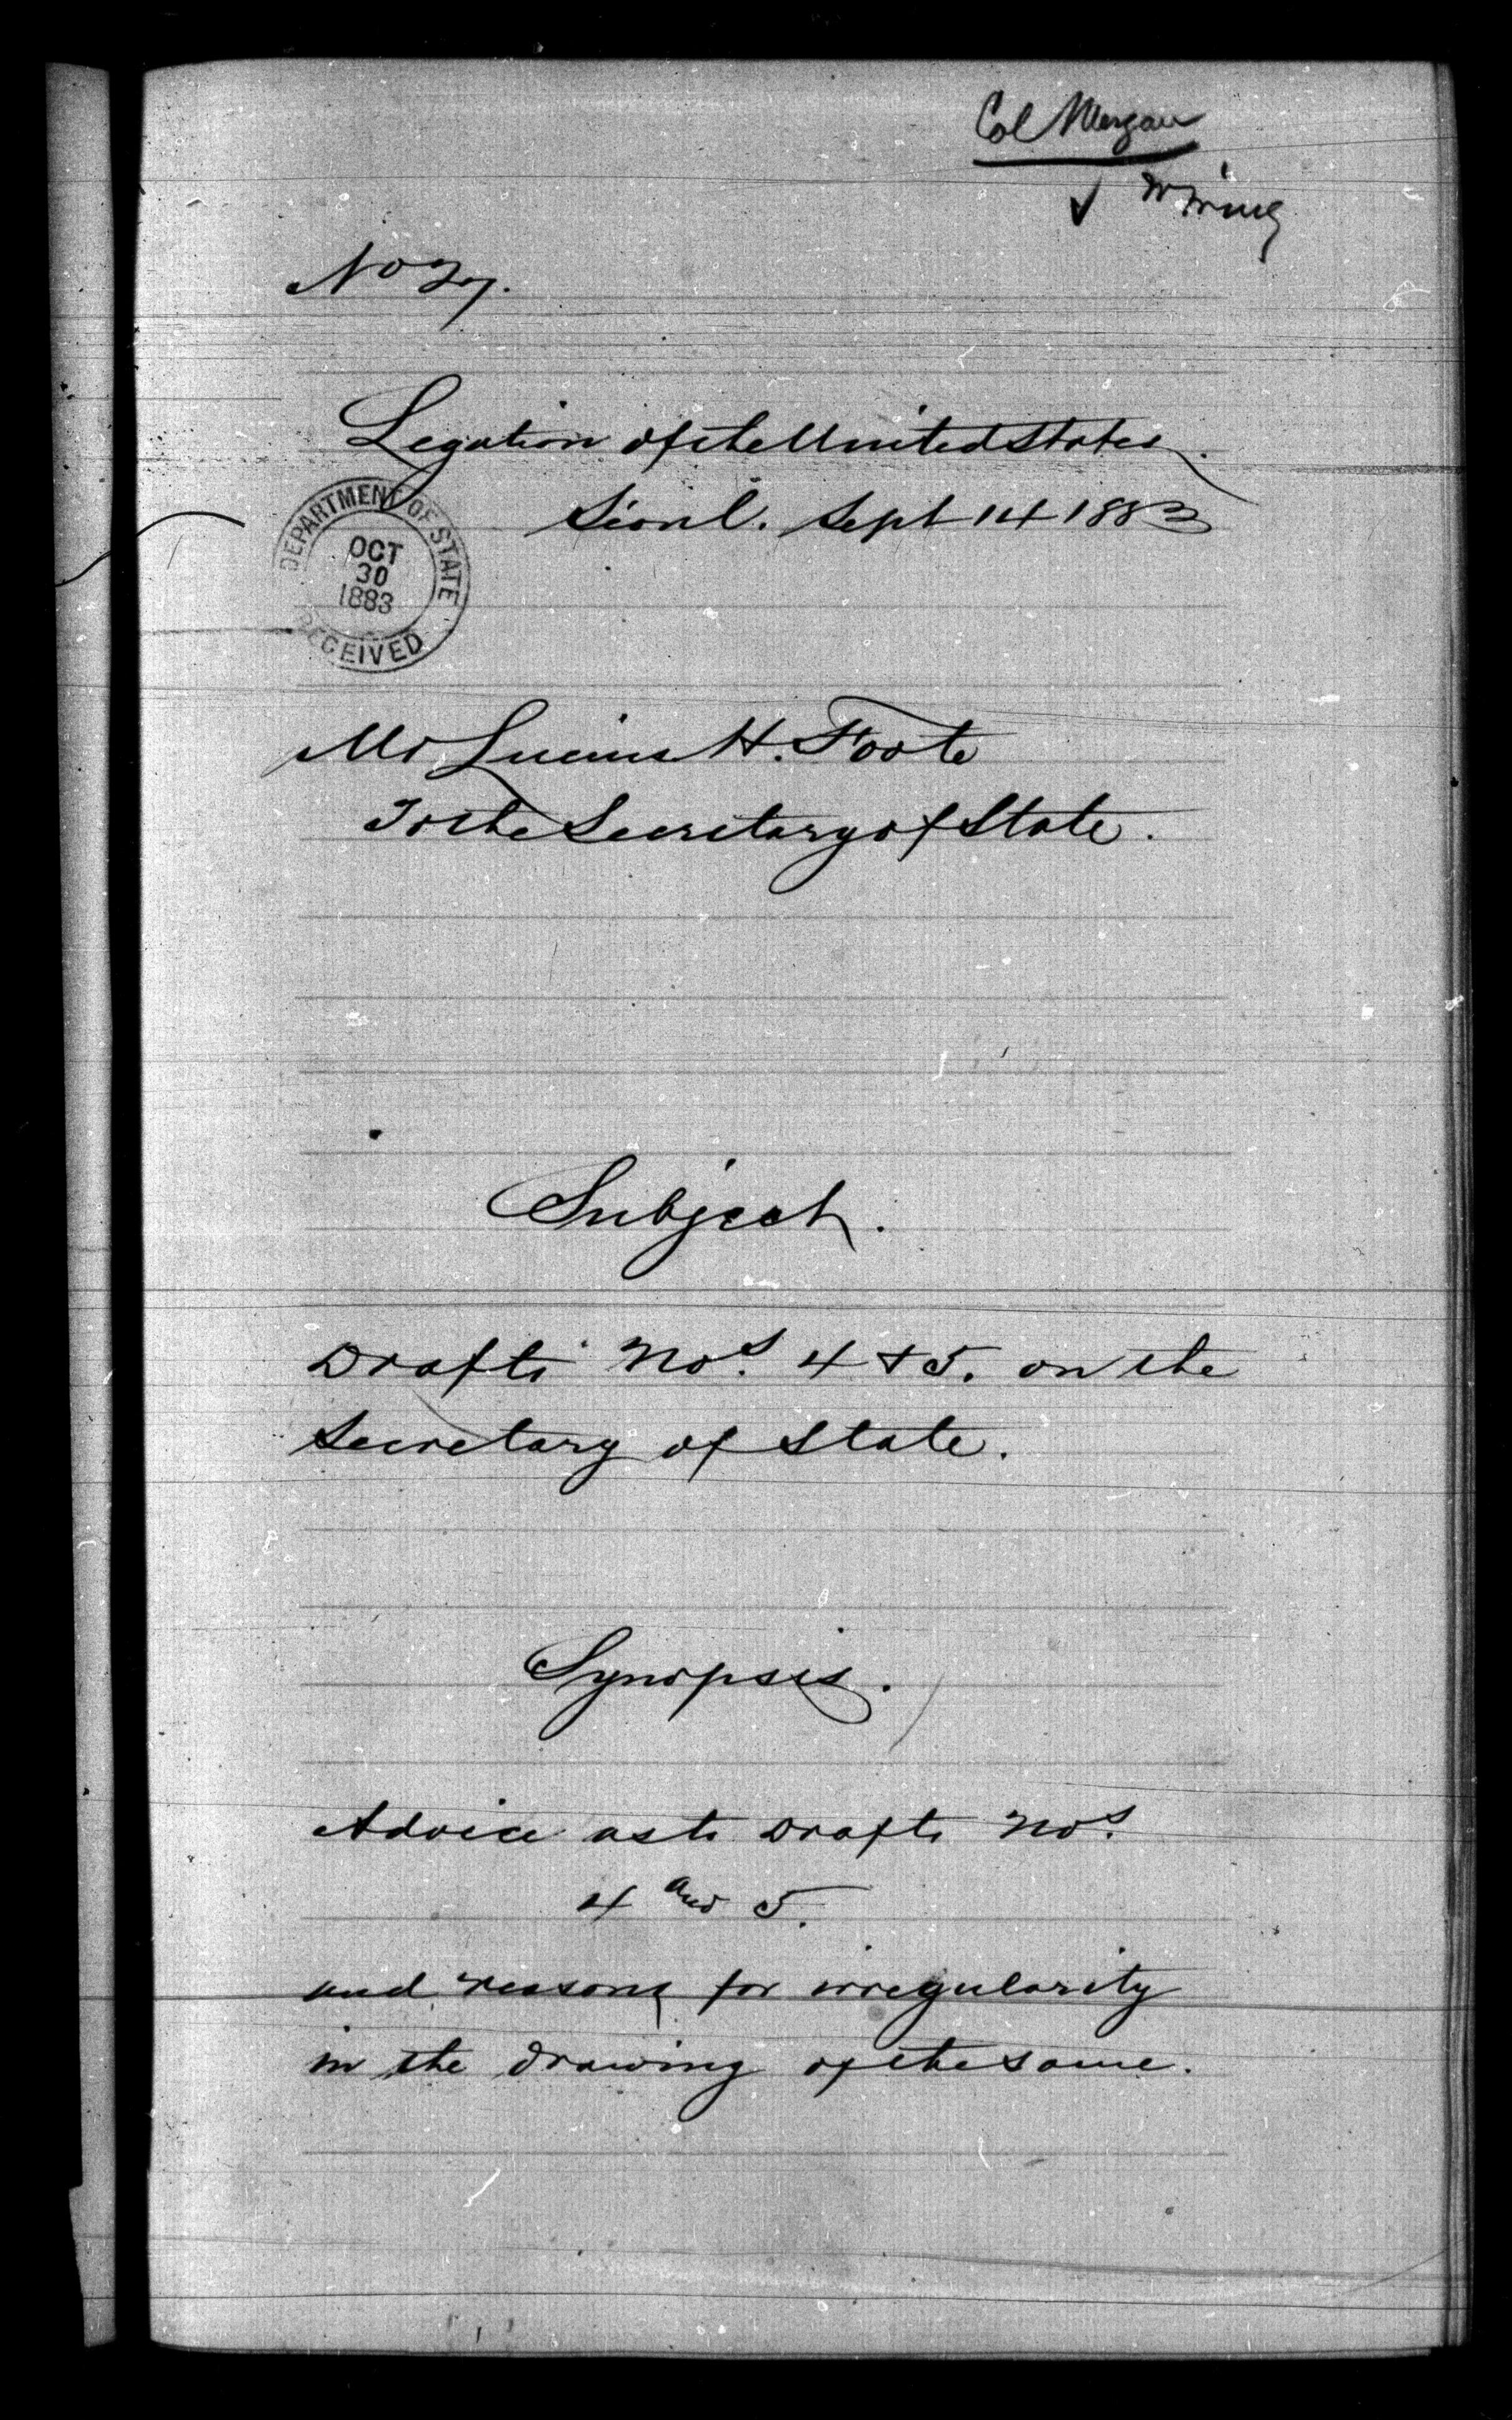 Col Morgan
No 27.
Legation of the United States.
Séoul. Sept 14 1883
DEPARTMENT OF STATE
OCT
30
1883
RECEIVED
Mr Lucius H. Foote
To the Secretary of State.
Subject.
Drafts Nos. 4 & 5. on the
Secretary of State.
Synopsis.
Advice as to Drafts Nos.
4 and 5.
and reasons for irregularity
in the drawing of the same.